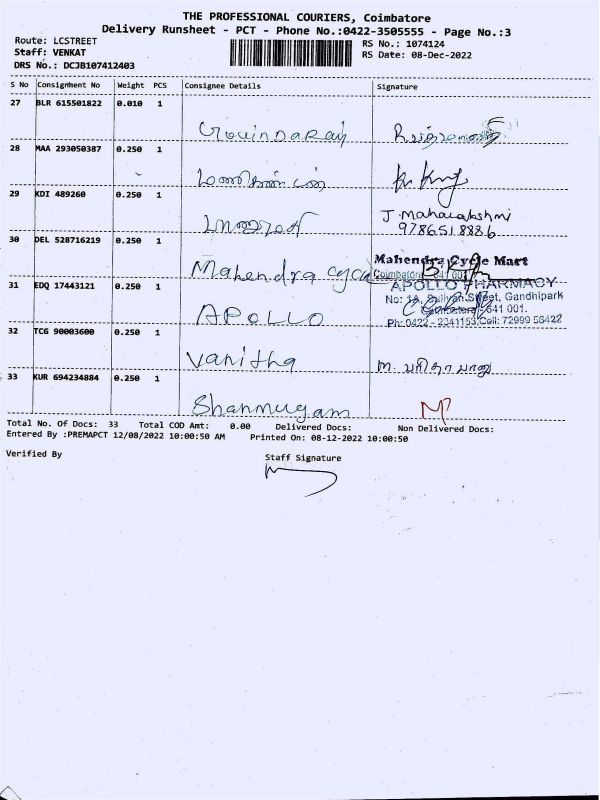 THE PROFESSIONAL COURIERS, Coimbatore
Delivery Runsheet - PCT - Phone No.:0422-3505555 - Page No.:3
Route: LCSTREET
RS No.: 1074124
Staff: VENKAT
RS Date: 08-Dec-2022
DRS No.: DCJB107412403
S No Consignment No Weight PCS Consignee Details Signature
27 BLR 615501822 0.010 1
Govindaraj
28 MAA 293050387 0.250 1
மணிகண்டன்
29 KDI 489260 0.250 1
J. Mahalakshmi
9786518886
30 DEL 528716219 0.250 1
Mahendra cycle
Mahendra Cycle Mart
Coimbatore - 641 001
31 EDQ 17443121 0.250 1
APOLLO
APOLLO PHARMACY
No: 1A, Street, Gandhipark
Coimbatore - 641 001.
Ph: 0422 - 2341153,Cell: 72999 56422
32 TCG 90003600 0.250 1
Vanitha
33 KUR 694234884 0.250 1
Shanmugam
Total No. Of Docs: 33 Total COD Amt: 0.00 Delivered Docs: Non Delivered Docs:
Entered By :PREMAPCT 12/08/2022 10:00:50 AM Printed On: 08-12-2022 10:00:50
Verified By
Staff Signature